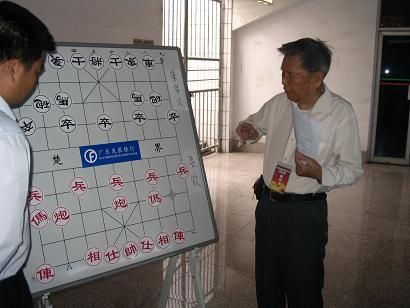 象 士 將 士 象 車
砲 馬 馬 砲
卒 卒 卒 卒 卒
楚 广东发展银行 界
GUANGDONG DEVELOPMENT BANK
兵 兵 兵 兵 兵
傌 炮 炮 傌
俥 相 仕 帥 仕 相 俥